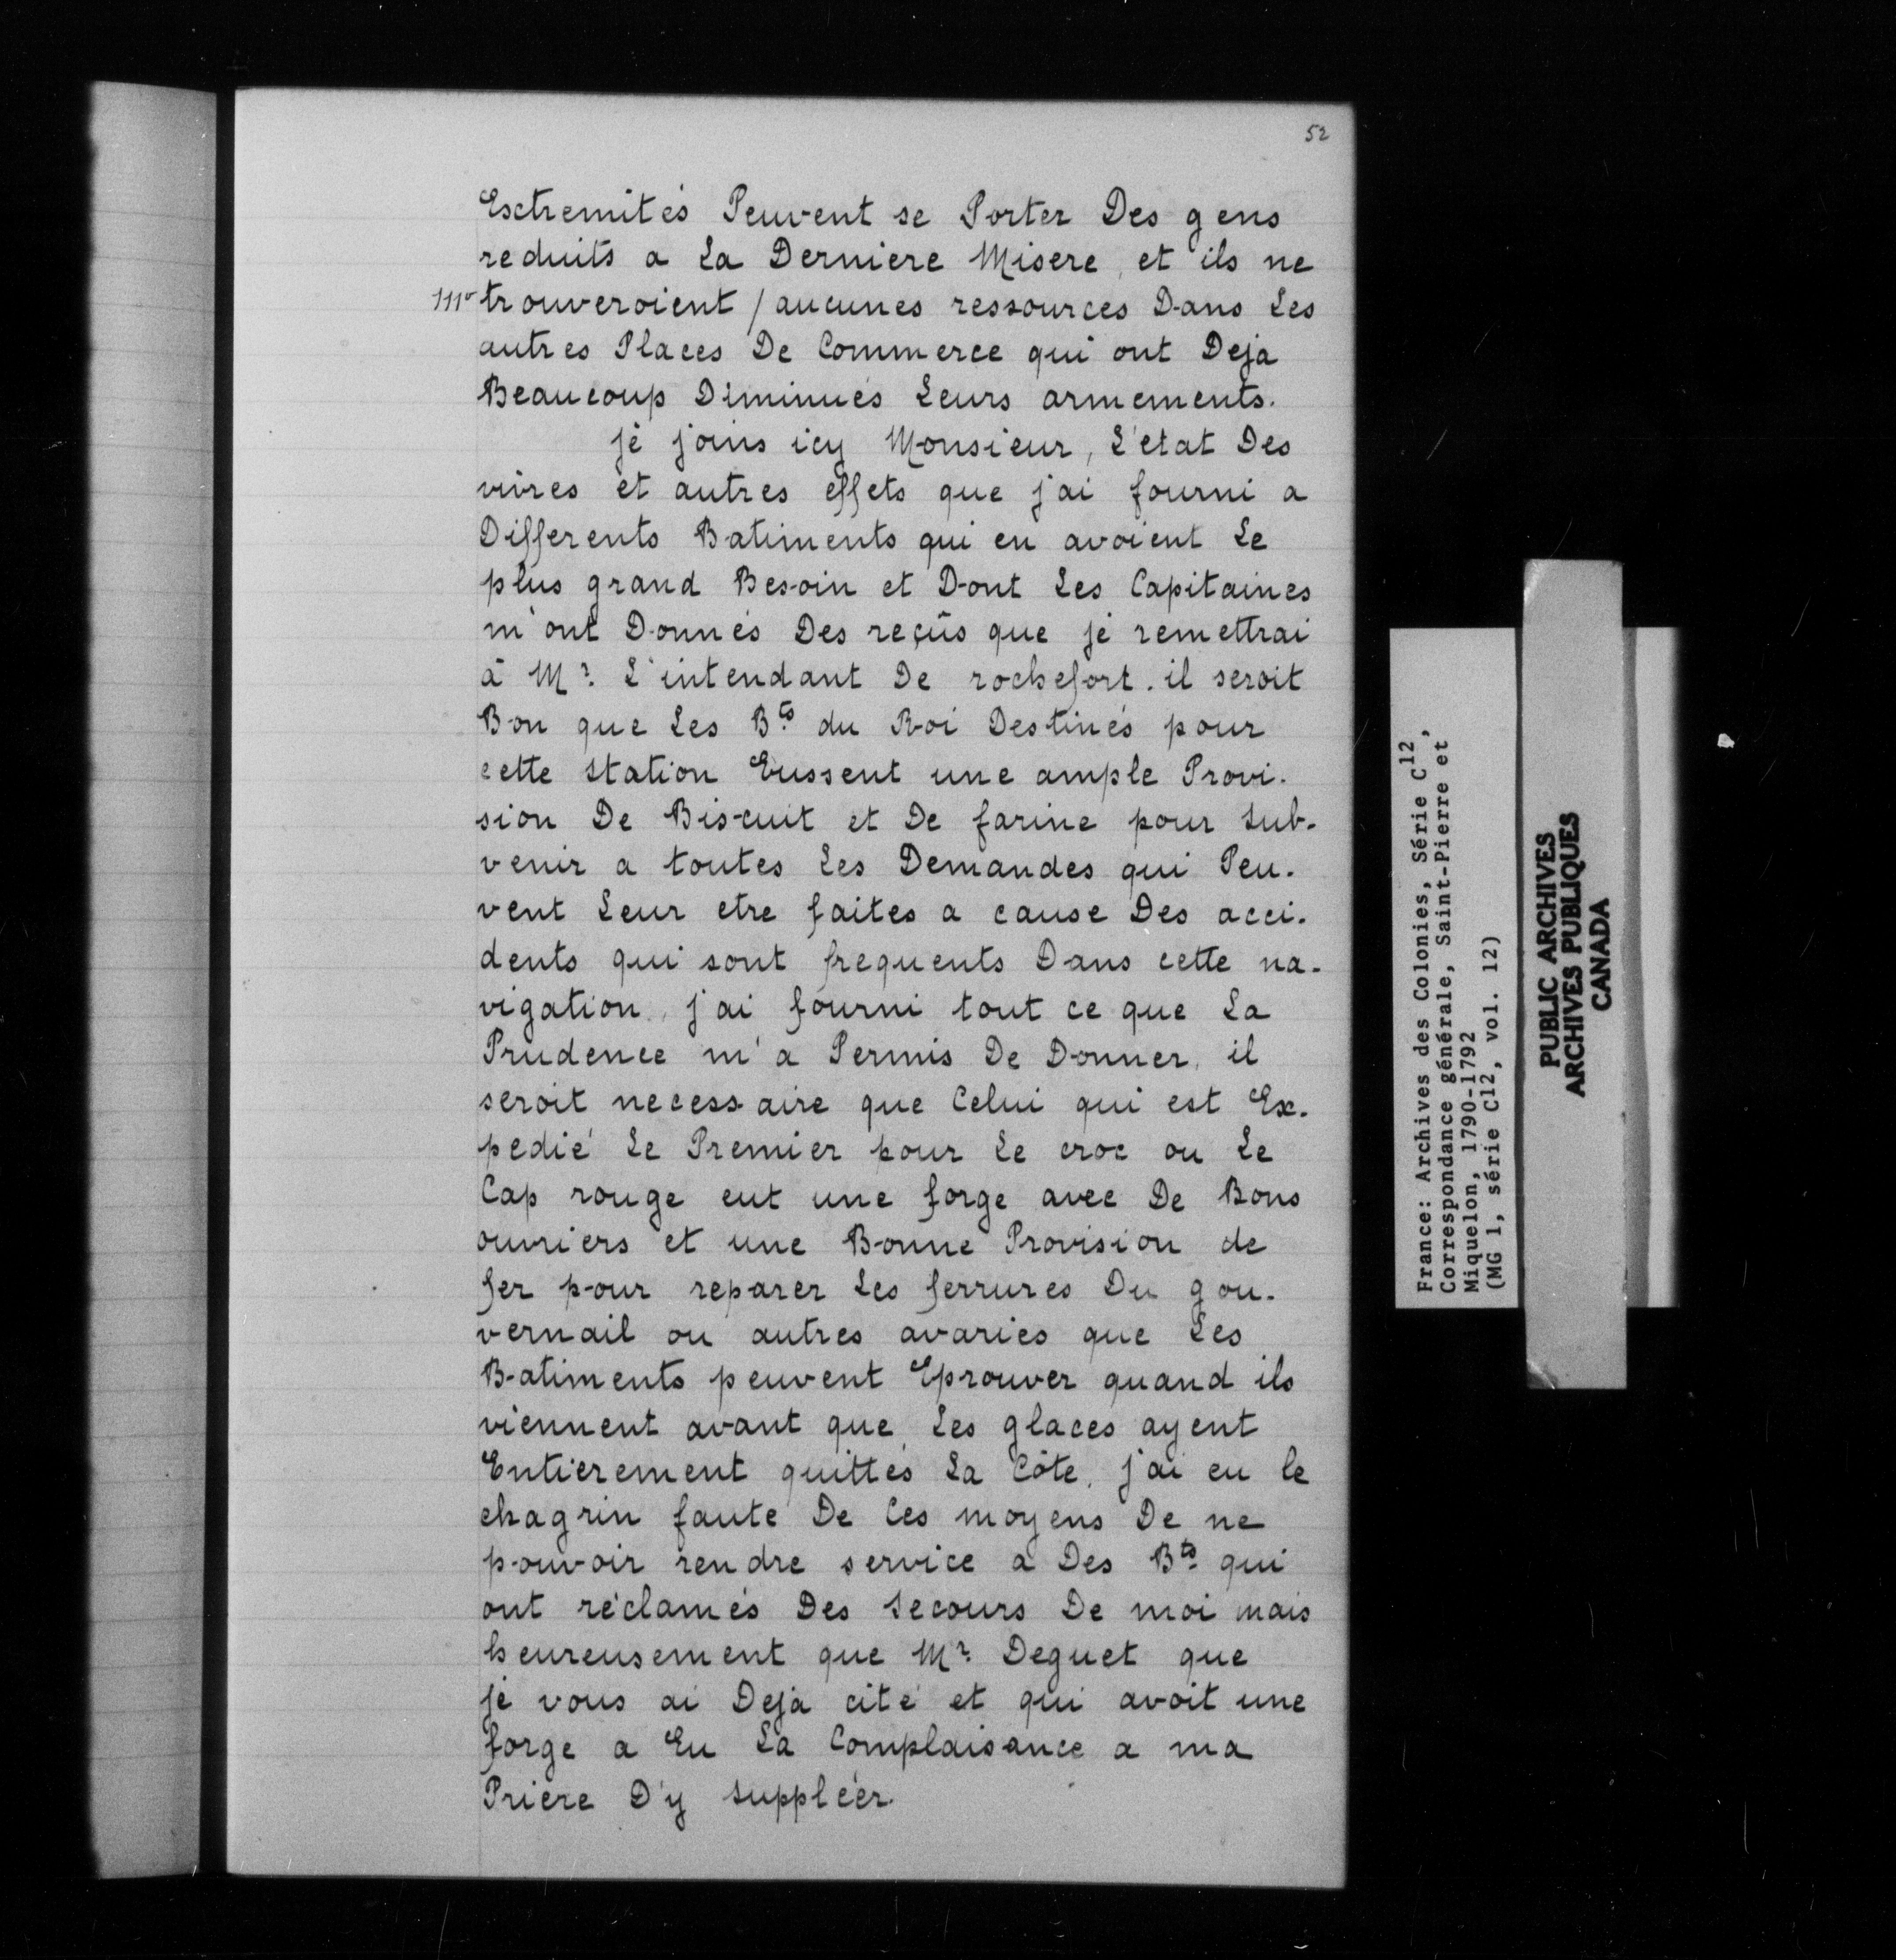 52
Esctremités Peuvent se Porter Des gens
reduits a La Derniere Misere, et ils ne
111v trouveroient / aucunes ressources Dans Les
autres Places De Commerce qui ont Deja
Beaucoup Diminués Leurs armements.
je joins icy Monsieur, L'etat Des
vivres et autres effets que j'ai fourni a
Differents Batiments qui en avoient Le
plus grand Besoin et Dont Les Capitaines
m'ont Donnés Des reçûs que je remettrai
à Mr. L'intendant De rochefort. il seroit
Bon que Les Bts du Roi Destinés pour
cette Station Eussent une ample Provi-
sion De Biscuit et De farine pour Sub-
venir a toutes Les Demandes qui Peu-
vent Leur etre faites a cause Des acci-
dents qui sont frequents Dans cette na-
vigation, j'ai fourni tout ce que La
Prudence m'a Permis De Donner, il
seroit necessaire que Celui qui est Ex-
pedié Le Premier pour Le croc ou Le
Cap rouge eut une forge avec De Bons
ouvriers et une Bonne Provision de
fer pour reparer Les ferrures Du gou-
vernail ou autres avaries que Les
Batiments peuvent Eprouver quand ils
viennent avant que Les glaces ayent
Entierement quittés La Côte, j'ai eu le
chagrin faute De Ces moyens De ne
pouvoir rendre service a Des Bts qui
ont réclamés Des Secours De moi mais
heureusement que Mr. Deguet que
je vous ai Deja cité et qui avoit une
forge a Eu La Complaisance a ma
Priere D'y Suppléer.
France: Archives des Colonies, Série C12,
Correspondance générale, Saint-Pierre et
Miquelon, 1790-1792
(MG 1, série C12, vol. 12)
PUBLIC ARCHIVES
ARCHIVES PUBLIQUES
CANADA